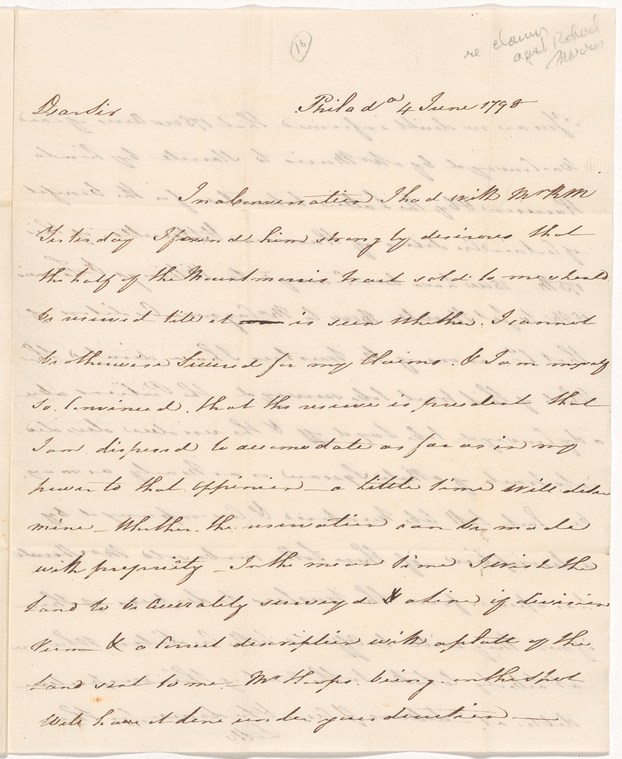 16
re claims
agst Robert
Morris
Dear Sir
Philada 4 June 1798
In a Conversation I had with Mr R M
Yesterday I found him strongly desirous that
the half of the Mountmorris tract sold to me should
be reserved till it is seen whether I cannot
be otherwise secured for my Claims. & I am myself
so Convinced that the reserve is prudent that
I am disposed to accomodate as far as in my
power to that oppinion – a little time will deter
mine – Whether the reservation can be made
with propriety – In the mean time I wish the
Land to be accurately surveyed & a line of division
run & a Correct description with a platt of the
Land sent to me – Mr Hoops being on the spot
will have it done under your direction —